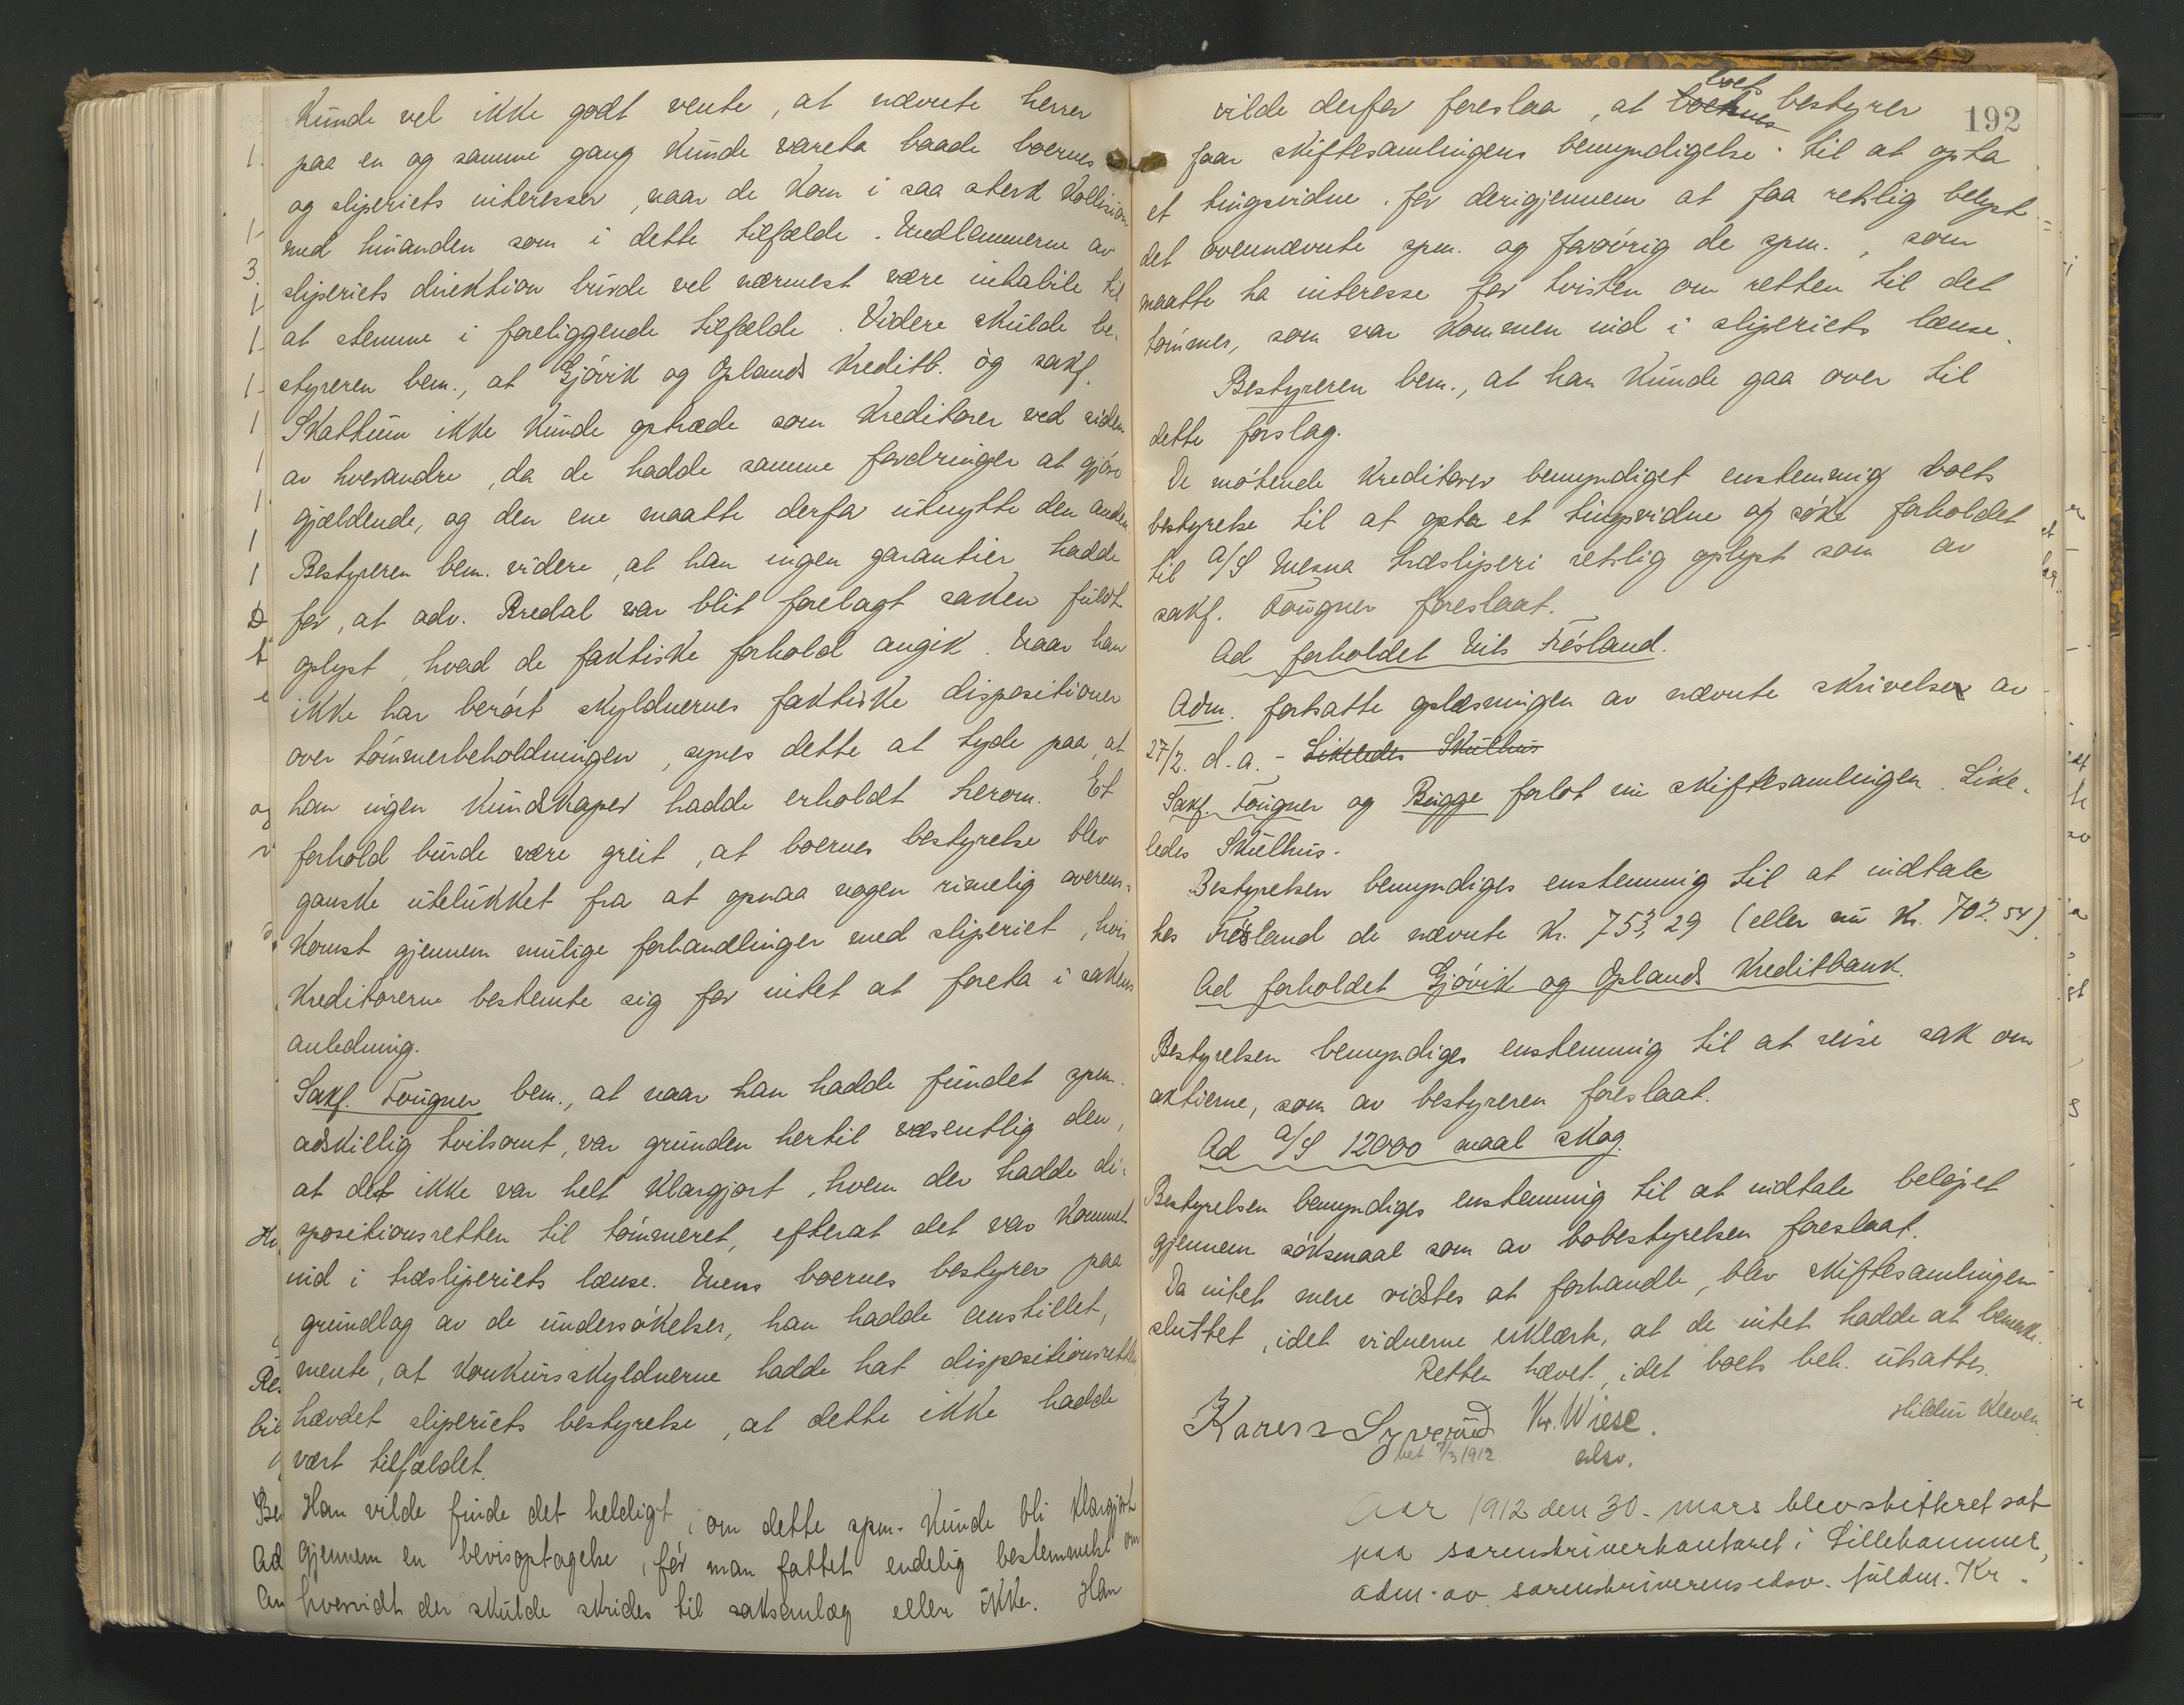 kunde vel ikke godt vente, at nævnte herrer
paa en og samme gang kunde vareta baade boernes
og sliperiets interesser, naar de kom i saa sterk kollision
med hinanden som i dette tilfælde. Medlemmerne av
sliperiets direktion burde vel nærmest være inhabile til
at stemme i foreliggende tilfælde. Videre skulde be-
styreren bem., at Gjøvik og Oplands Kreditb. og sakf.
Skattum ikke kunde optræde som kreditorer ved siden
av hverandre, da de hadde samme fordringer at gjøre
gjældende, og den ene maatte derfor utnytte den anden
Bestyreren bem. videre, at han ingen garantier hadde
for, at adv. Bredal var blit forelagt saken fuldt
oplyst, hvad de faktiske forhold angik. Naar han
ikke har berørt skyldnernes faktiske dispositioner
over tømmerbeholdningen, synes dette at tyde paa, at
han ingen kundskaper hadde erholdt herom. Et
forhold burde være greit, at boernes bestyrelse blev
ganske utelukket fra at opnaa nogen rimelig overens-
komst gjennem mulige forhandlinger med sliperiet, hvis
kreditorerne bestemte sig for intet at foreta i sakens
anledning.
Sakf. Fougner bem., at naar han hadde fundet spm.
adskillig tvilsomt, var grunden hertil væsentlig den,
at det ikke var helt klargjort, hvem der hadde di-
spositionsretten til tømmeret, efterat det var kommet
ind i træsliperiets lænse. Mens boernes bestyrer paa
grundlag av de undersøkelser, han hadde anstillet,
mente, at konkursskyldnerne hadde hat dispositionsretten,
hævdet sliperiets bestyrelse, at dette ikke hadde
vært tilfældet.
Han vilde finde det heldigt, om dette spm. kunde bli klargjort
gjennem en bevisoptagelse, før man fattet endelig bestemmelse om
hvorvidt der skulde skrides til saksanlæg eller ikke. Han
192
vilde derfor foreslaa, at boernes boets bestyrer
faar skiftesamlingens bemyndigelse til at opta
et tingsvidne for derigjennem at faa retslig belyst
det ovennævnte spm. og forøvrig de spm., som
maatte ha interesse for tvisten om retten til det
tømmer, som var kommen ind i sliperiets lænse.
Bestyreren bem., at han kunde gaa over til
dette forslag.
De møtende kreditorer bemyndiget enstemmig boets
bestyrelse til at opta et tingsvidne og søke forholdet
til A/S Mesna træsliperi retslig oplyst som av
sakf. Fougner foreslaat.
Ad forholdet Nils Frøsland.
Adm. fortsatte oplæsningen av nævnte skrivelse av
27/2. d. a. - Likeledes Skulhus
Sakf. Fougner og Bugge forlot nu skiftesamlingen. Like-
ledes Skulhus.
Bestyrelsen bemyndiges enstemmig til at indtale
hos Frøsland de nævnte kr. 753,29 (eller nu kr. 702.54).
Ad forholdet Gjøvik og Oplands Kreditbank.
Bestyrelsen bemyndiges enstemmig til at reise sak om
aktierne, som av bestyreren foreslaat.
Ad A/S 12000 maal skog.
Bestyrelsen bemyndiges enstemmig til at indtale beløpet
gjennem søksmaal som av bobestyrelsen foreslaat.
Da intet mere vidstes at forhandle, blev skiftesamlingen
sluttet, idet vidnerne erklærte, at de intet hadde at bemerke.
Retten hævet, idet boets beh. utsattes.
Karens Syverud Kr. Wiese.
bet 7/3 1912 edsv.
Hildur Kleven
Aar 1912 den 30. mars blev skifteret sat
paa sorenskriverkontoret i Lillehammer,
adm. av sorenskriverens edsv. fuldm. Kr.